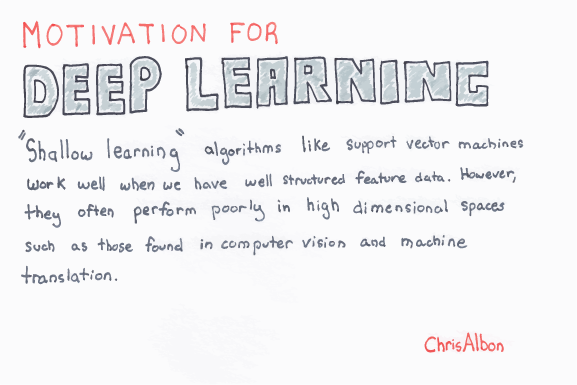 MOTIVATION FOR
DEEP LEARNING
"Shallow learning" algorithms like support vector machines
work well when we have well structured feature data. However,
they often perform poorly in high dimensional spaces
such as those found in computer vision and machine
translation.
ChrisAlbon